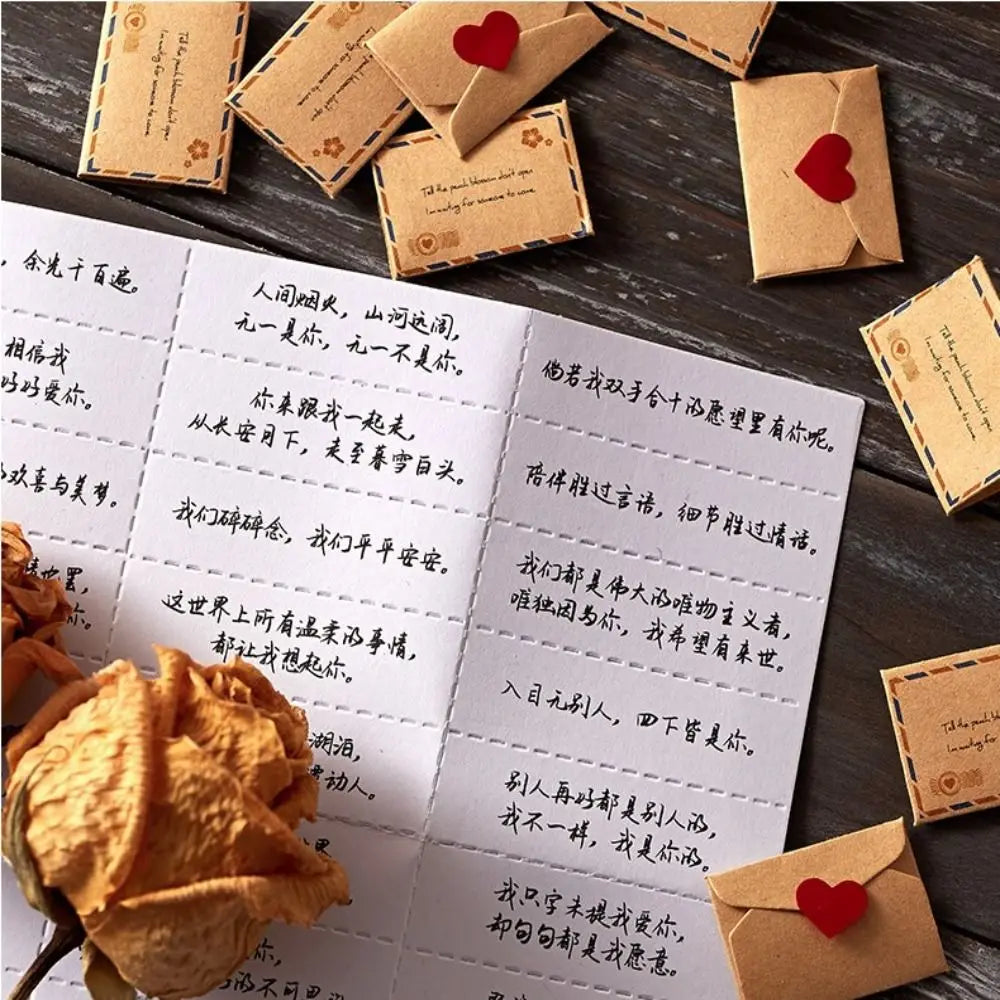 Tell the peach blossom don't open
I'm waiting for someone to come
Tell the peach blossom don't open
I'm waiting for someone to come
Tell the peach blossom don't open
I'm waiting for someone to come
Tell the peach blossom
I'm waiting for
，余光千百遍。
相信我
好好爱你。
欢喜与美梦。
你。
人间烟火，山河远阔，
无一是你，无一不是你。
你来跟我一起走，
从长安月下，走至暮雪白头。
我们碎碎念，我们平平安安。
这世界上所有温柔的事情，
都让我想起你。
湖泊，
动人。
你，
的不可思
倘若我双手合十的愿望里有你呢。
陪伴胜过言语，细节胜过情话。
我们都是伟大的唯物主义者，
唯独因为你，我希望有来世。
入目无别人，四下皆是你。
别人再好都是别人的，
我不一样，我是你的。
我只字未提我爱你，
却句句都是我愿意。